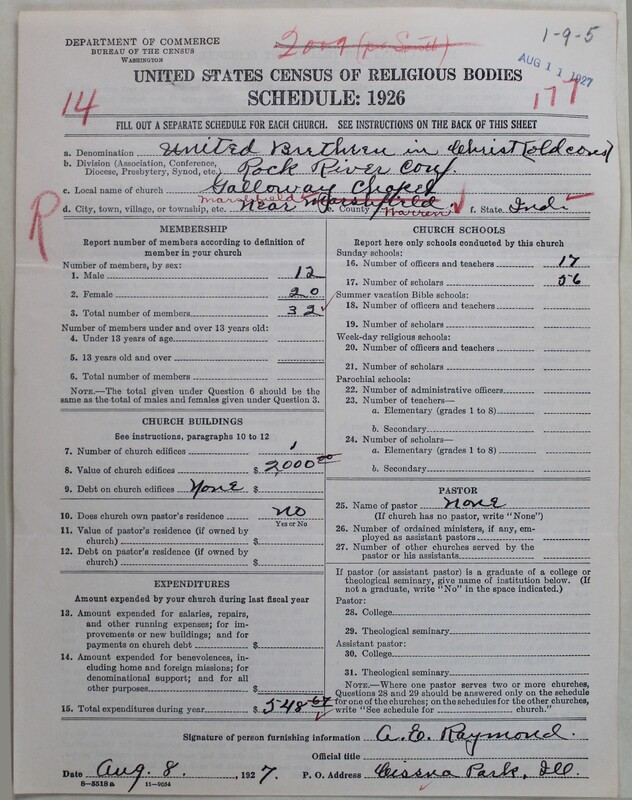 1-9-5
DEPARTMENT OF COMMERCE
BUREAU OF THE CENSUS
WASHINGTON
AUG 11 1927
UNITED STATES CENSUS OF RELIGIOUS BODIES
SCHEDULE: 1926
14
177
FILL OUT A SEPARATE SCHEDULE FOR EACH CHURCH. SEE INSTRUCTIONS ON THE BACK OF THIS SHEET
a. Denomination United Brethren in Christ (old const)
b. Division (Association, Conference, Diocese, Presbytery, Synod, etc.) Rock River Conf.
c. Local name of church Galloway Chapel
d. City, town, village, or township, etc. Near Marshfield Marshfield e. County Warren f. State Ind.
R
MEMBERSHIP
Report number of members according to definition of
member in your church
Number of members, by sex:
1. Male 12
2. Female 20
3. Total number of members 32
Number of members under and over 13 years old:
4. Under 13 years of age
5. 13 years old and over
6. Total number of members
NOTE.—The total given under Question 6 should be the
same as the total of males and females given under Question 3.
CHURCH BUILDINGS
See instructions, paragraphs 10 to 12
7. Number of church edifices 1
8. Value of church edifices $ 2,000 00
9. Debt on church edifices None $
10. Does church own pastor's residence No
Yes or No
11. Value of pastor's residence (if owned by
church) $
12. Debt on pastor's residence (if owned by
church) $
EXPENDITURES
Amount expended by your church during last fiscal year
13. Amount expended for salaries, repairs,
and other running expenses; for im-
provements or new buildings; and for
payments on church debt $
14. Amount expended for benevolences, in-
cluding home and foreign missions; for
denominational support; and for all
other purposes $
15. Total expenditures during year $ 548 67
CHURCH SCHOOLS
Report here only schools conducted by this church
Sunday schools:
16. Number of officers and teachers 17
17. Number of scholars 56
Summer vacation Bible schools:
18. Number of officers and teachers
19. Number of scholars
Week-day religious schools:
20. Number of officers and teachers
21. Number of scholars
Parochial schools:
22. Number of administrative officers
23. Number of teachers—
a. Elementary (grades 1 to 8)
b. Secondary
24. Number of scholars—
a. Elementary (grades 1 to 8)
b. Secondary
PASTOR
25. Name of pastor None
(If church has no pastor, write "None")
26. Number of ordained ministers, if any, em-
ployed as assistant pastors
27. Number of other churches served by the
pastor or his assistants
If pastor (or assistant pastor) is a graduate of a college or
theological seminary, give name of institution below. (If
not a graduate, write "No" in the space indicated.)
Pastor:
28. College
29. Theological seminary
Assistant pastor:
30. College
31. Theological seminary
NOTE.—Where one pastor serves two or more churches,
Questions 28 and 29 should be answered only on the schedule
for one of the churches; on the schedules for the other churches,
write "See schedule for church."
Signature of person furnishing information A. E. Raymond.
Official title
Date Aug. 8, 1927. P. O. Address Cissna Park, Ill.
8-5518 a 11-9054